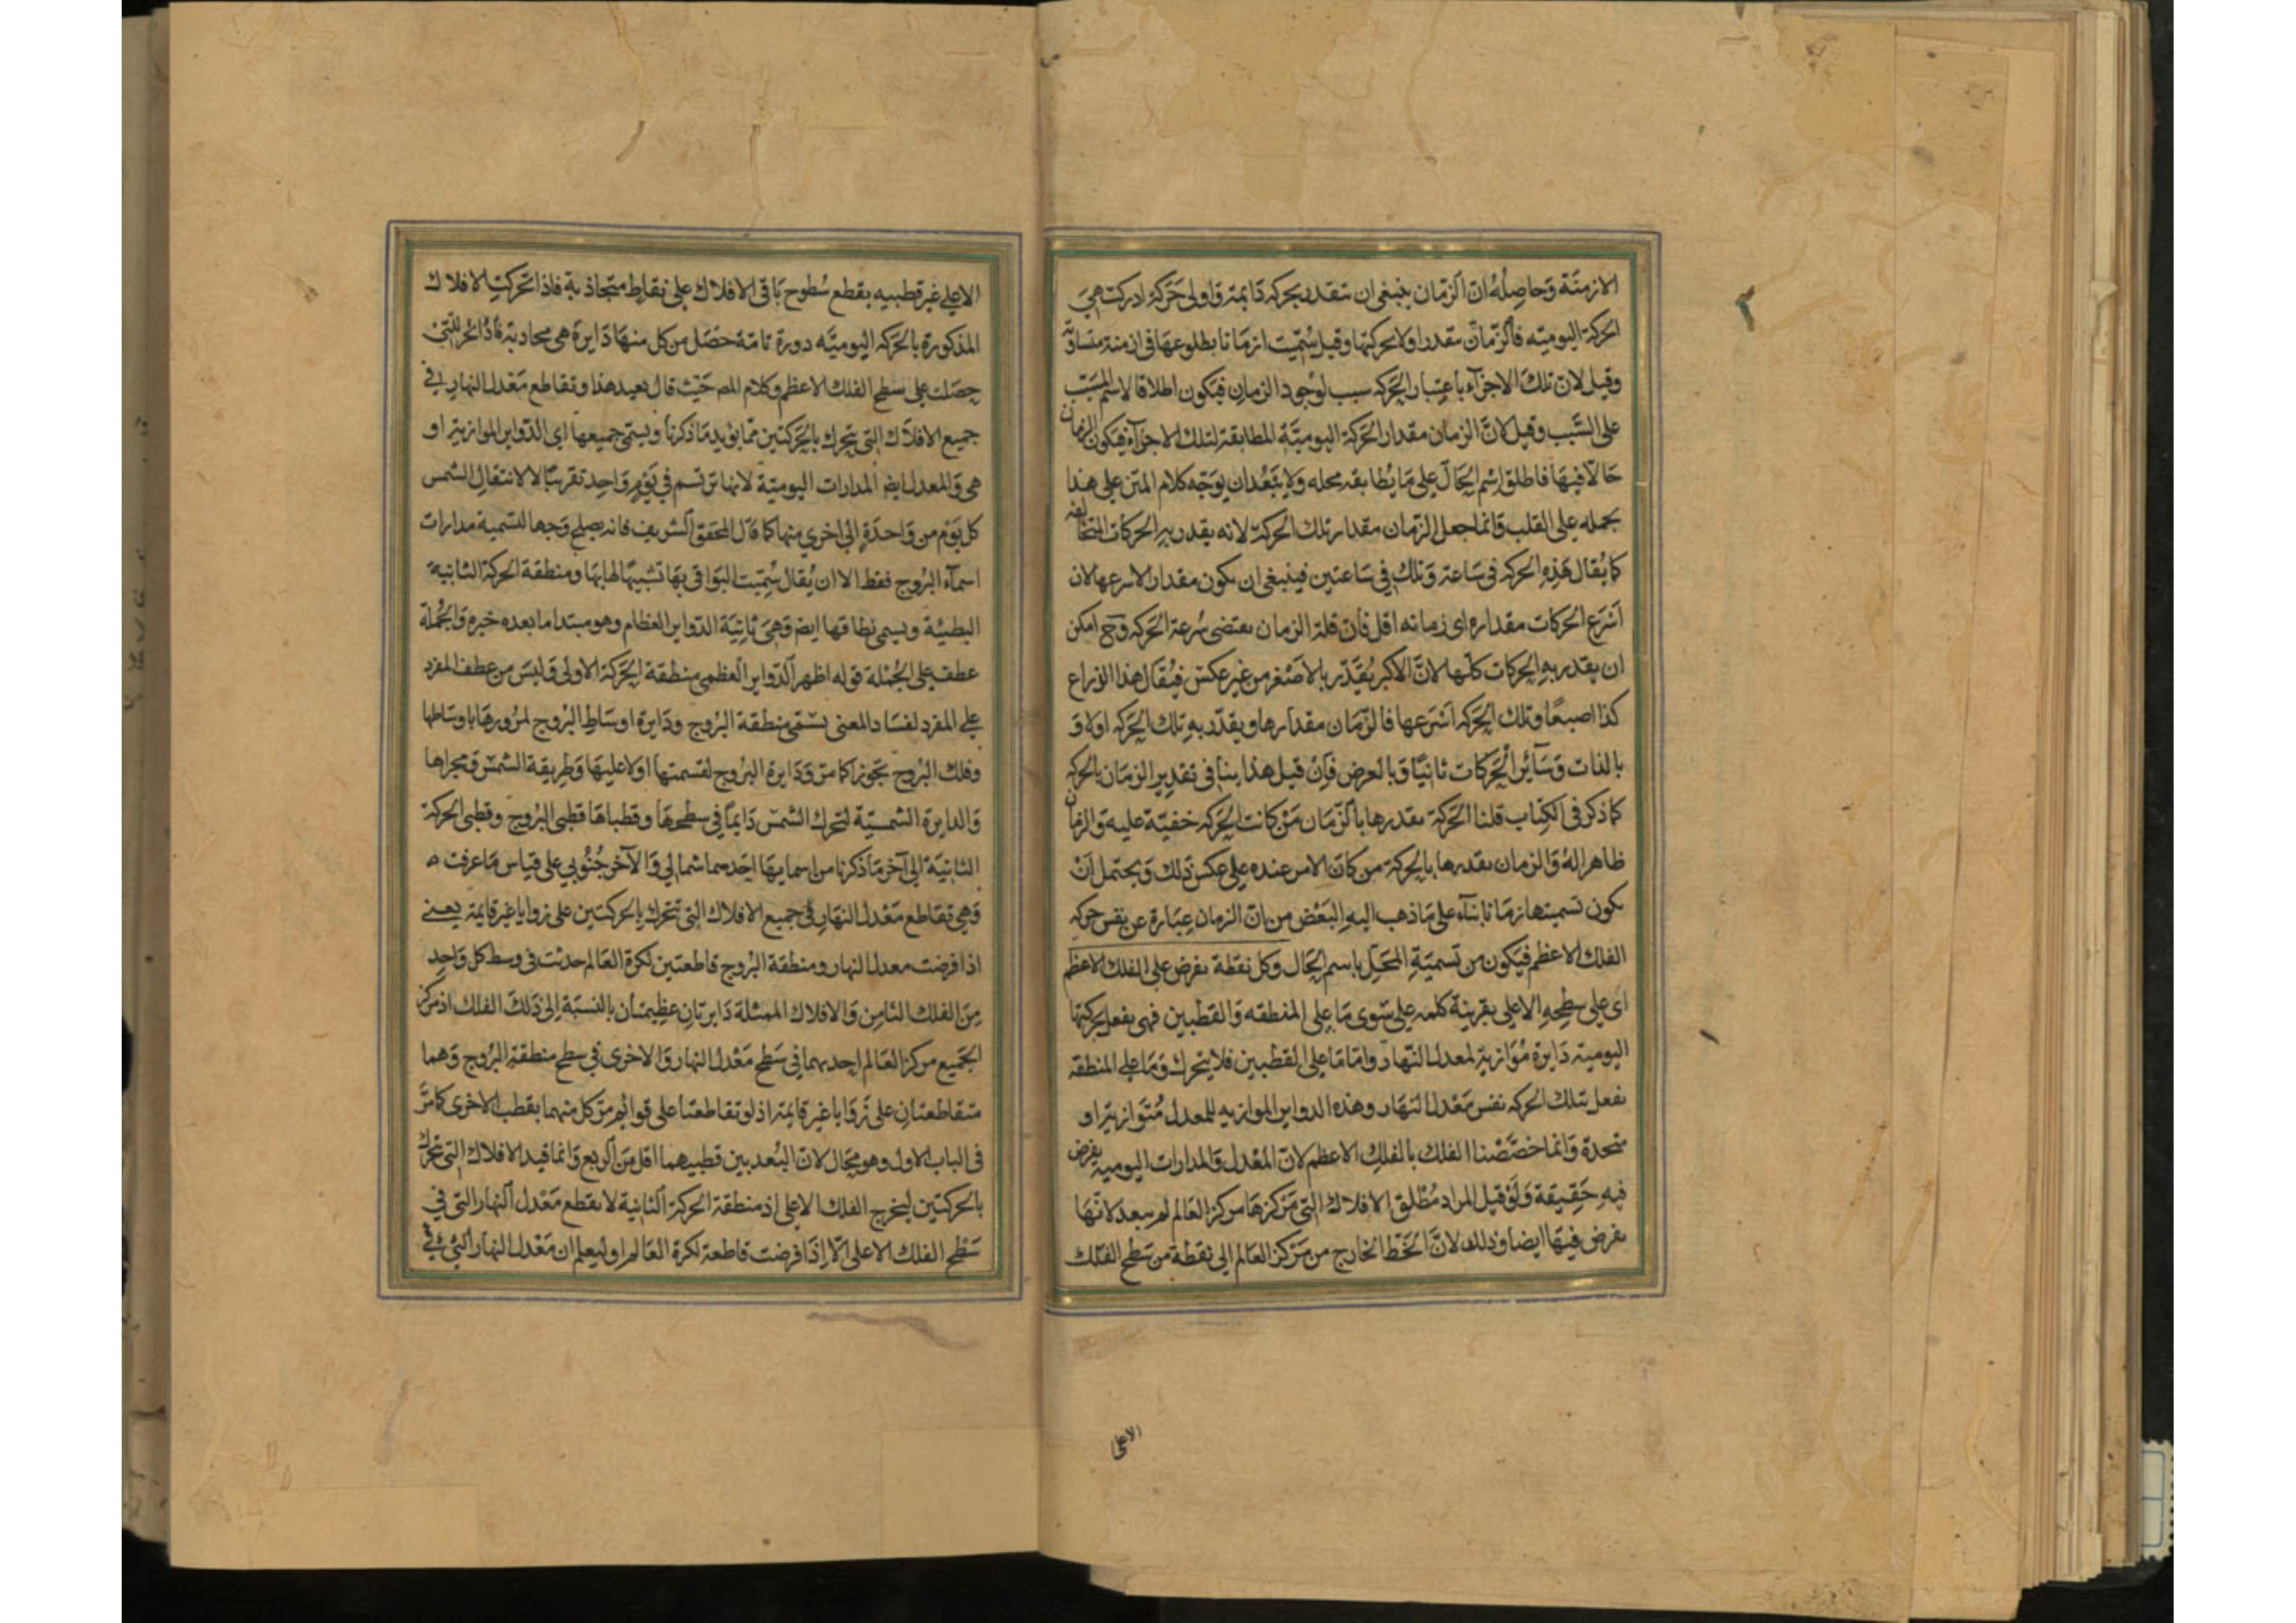 الازمنة وحاصله ان الزمان ينبغى ان يتقدر بحركه دايمة واولى حركة ادركت هى
الحركة اليوميه فالزمان مقدر اولا بحركتها وقيل سميت ازمانا بطلوعها فى ازمنة متساوية
وقيل لان تلك الاجزاء باعتبار الحركه سبب لوجود الزمان فيكون اطلاقا لاسم المسبب
على السبب وقيل لان الزمان مقدار الحركة اليومية المطابقة لتلك الاجزاء فيكون الزمان
حالا فيها فاطلق اسم الحال على ما يطابقه محله ولا يبعد ان يوجه كلام المتن على هذا
بحمله على القلب وانما جعل الزمان مقدار تلك الحركة لانه يقدر به الحركات المتخالفه
كما يقال هذه الحركه فى ساعة وتلك فى ساعتين فينبغى ان يكون مقدار الاسرعها لان
اسرع الحركات مقداره اى زمانه اقل فان قلة الزمان يقتضى سرعة الحركه وح امكن
ان يقدر به الحركات كلها لان الاكبر يقدر بالاصغر من غير عكس فيقال هذا الذراع
كذا اصبعا وتلك الحركه اسرعها فالزمان مقدارها ويقدر به تلك الحركه اولا و
بالذات وسائر الحركات ثانيا وبالعرض فان قيل هذا ينافى تقدير الزمان بالحركه
كما ذكر فى الكتاب قلنا الحركة يقدرها بالزمان من كانت الحركه خفية عليه والزمان
ظاهرا له والزمان يقدرها بالحركة من كان الامر عنده على عكس ذلك ويحتمل ان
يكون تسميتها زمانا بناء على ما ذهب اليه البعض من ان الزمان عبارة عن نفس حركه
الفلك الاعظم فيكون من تسمية المحل باسم الحال وكل نقطة يفرض على الفلك الاعظم
اى على سطحه الاعلى بقرينة كلمه على سوى ما على المنطقه والقطبين فهى يفعل بحركتها
اليومية دايرة موازية لمعدل النهار واما ما على القطبين فلا يتحرك وما على المنطقه
يفعل بتلك الحركه نفس معدل النهار وهذه الدواير الموازيه للمعدل متوازية او
متحدة وانما خصصنا الفلك بالفلك الاعظم لان المعدل والمدارات اليومية يفرض
فيه حقيقة ولو قيل المراد مطلق الافلاك التى مركزها مركز العالم لم يبعد لانها
يفرض فيها ايضا وذلك لان الخط الخارج من مركز العالم الى نقطة من سطح الفلك
الاعلى
الاعلى غير قطبيه يقطع سطوح باقى الافلاك على نقاط متحاذية فاذا تحركت الافلاك
المذكورة بالحركه اليوميه دورة تامة حصل من كل منها دايرة هى محاذية للتى
حصلت على سطح الفلك الاعظم وكلام المص حيث قال بعيد هذا وتقاطع معدل النهار فى
جميع الافلاك التى يتحرك بالحركتين مما يؤيد ما ذكرنا ويسمى جميعها اى الدواير الموازية او
هى والمعدل ايض المدارات اليومية لانها ترتسم فى يوم واحد تقريبا لا لانتقال الشمس
كل يوم من واحدة الى اخرى منها كما قال المحقق الشريف فانه يصلح وجها لتسمية مدارات
اسماء البروج فقط الا ان يقال سميت البواقى بها تشبيها لها بها ومنطقة الحركة الثانية
البطيئة ويسمى نطاقها ايض وهى ثانية الدواير العظام وهو مبتدا ما بعده خبره والجملة
عطف على الجملة قوله اظهر الدواير العظمى منطقة الحركة الاولى وليس من عطف المفرد
على المفرد لفساد المعنى تسمى منطقة البروج ودايرة اوساط البروج لمرورها باوساطها
وفلك البروج تجوزا كما مر ودايرة البروج لقسمتها اولا عليها وطريقة الشمس ومجراها
والدايرة الشمسية لتحرك الشمس دايما فى سطحها وقطباها قطبى البروج وقطبى الحركة
الثانية الى آخر ما ذكرنا من اسمايها احدهما شمالى والآخر جنوبى على قياس ما عرفت ه
وهى تقاطع معدل النهار فى جميع الافلاك التى تتحرك بالحركتين على زوايا غير قايمة يعنى
اذا فرضت معدل النهار ومنطقة البروج قاطعتين لكرة العالم حدثت فى وسط كل واحد
من الفلك الثامن والافلاك الممثلة دايرتان عظيمتان بالنسبة الى ذلك الفلك اذ مركز
الجميع مركز العالم احديهما فى سطح معدل النهار والاخرى فى سطح منطقة البروج وهما
متقاطعتان على زوايا غير قايمة اذ لو تقاطعتا على قوائم مر كل منهما بقطب الاخرى كما مر
فى الباب الاول وهو محال لان البعد بين قطبيهما اقل من الربع وانما قيد الافلاك التى تحرك
بالحركتين ليخرج الفلك الاعلى اذ منطقة الحركة الثانية لا يقطع معدل النهار التى فى
سطح الفلك الاعلى الا اذا فرضت قاطعة لكرة العالم او ليعلم ان معدل النهار التى فى